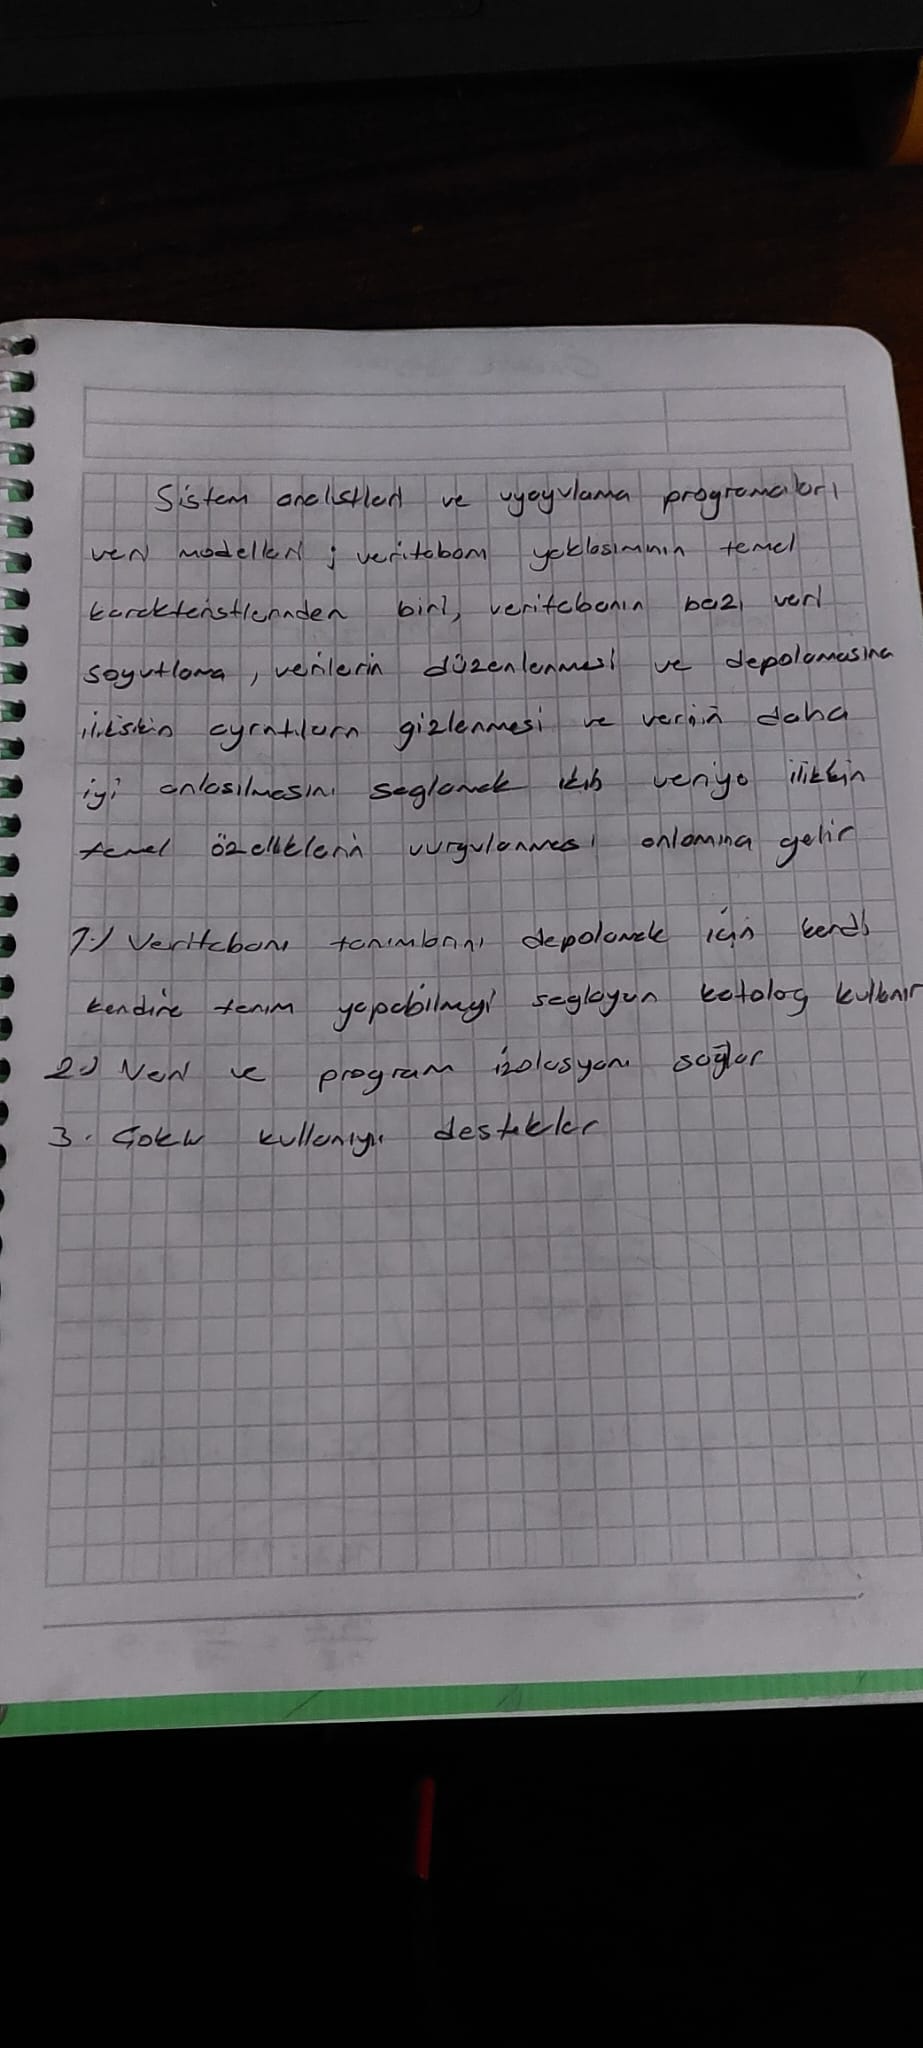 Sistem analistleri ve uygulama programcıları
veri modelleri ; veritabanı yaklasımının temel
karakteristlerinden biri, veritabanın bazı veri
soyutlama, verilerin düzenlenmesi ve depolamasına
ilişkin ayrıntıların gizlenmesi ve verinin daha
iyi anlasılmasını saglamak veriye ilişkin
temel özelliklerin vurgulanması anlamına gelir
1.) Veritabanı tanımlarını depolamak için kendi
kendine tanım yapabilmeyi saglayan katolog kullanır
2.) Veri ve program izolasyonu sağlar
3. Çoklu kullanıyı destekler